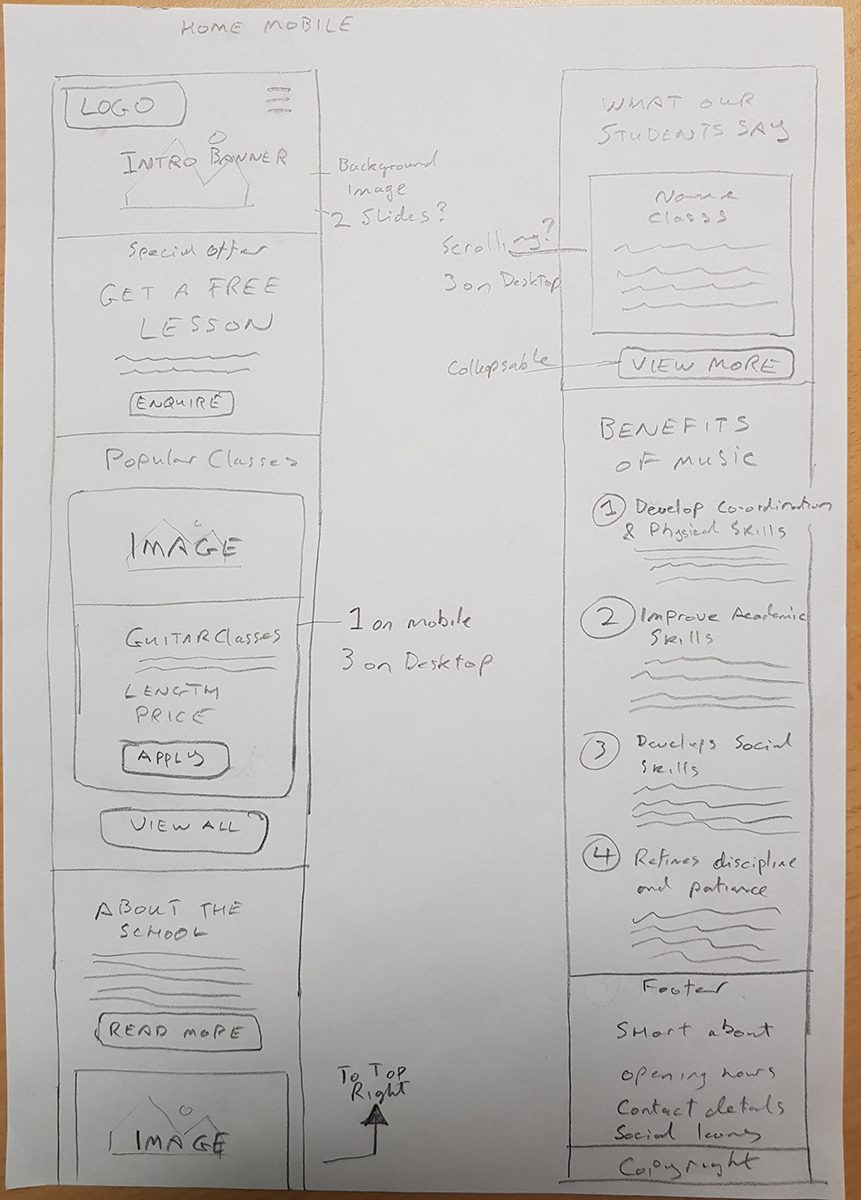 HOME MOBILE
LOGO
INTRO BANNER
Background
Image
2 Slides?
Special Offer
GET A FREE
LESSON
ENQUIRE
Popular Classes
IMAGE
1 on mobile
3 on Desktop
GUITAR Classes
LENGTH
PRICE
APPLY
VIEW ALL
ABOUT THE
SCHOOL
READ MORE
IMAGE
To Top
Right
WHAT OUR
STUDENTS SAY
Name
Classs
Scrolling?
3 on Desktop
Collapsable
VIEW MORE
BENEFITS
OF MUSIC
1 Develop Co-ordination
& Physical Skills
2 Improve Academic
Skills
3 Develops Social
Skills
4 Refines discipline
and patiance
Footer
Short about
opening hours
Contact details
Social Icons
Copyright